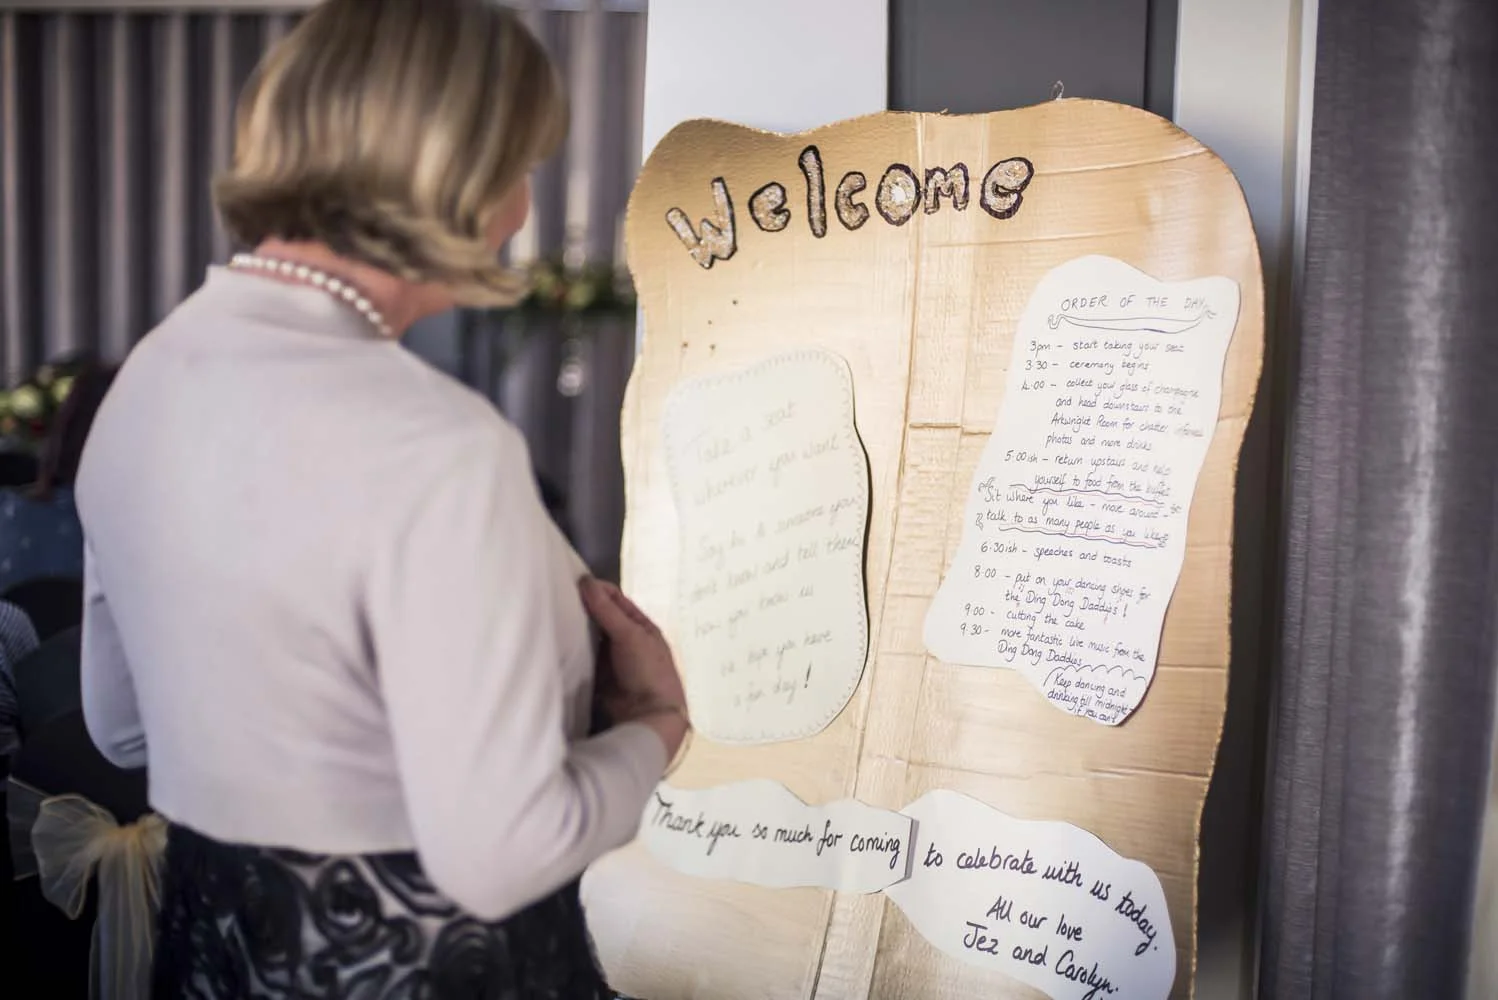 Welcome
Take a seat
wherever you want
Say hi to someone you
don't know and tell them
how you know us
We hope you have
a fun day!
ORDER OF THE DAY
3pm - start taking your seat
3.30 - ceremony begins
4.00 - collect your glass of champagne
and head downstairs to the
Arkwright Room for chatter informal
photos and more drinks
5.00ish - return upstairs and help
yourself to food from the buffet
Sit where you like - move around -
talk to as many people as you like
6.30ish - speeches and toasts
8.00 - put on your dancing shoes for
the Ding Dong Daddies!
9.00 - cutting the cake
9.30 - more fantastic live music from the
Ding Dong Daddies
Keep dancing and
drinking till midnight
if you can!
Thank you so much for coming
to celebrate with us today.
All our love
Jez and Carolyn.